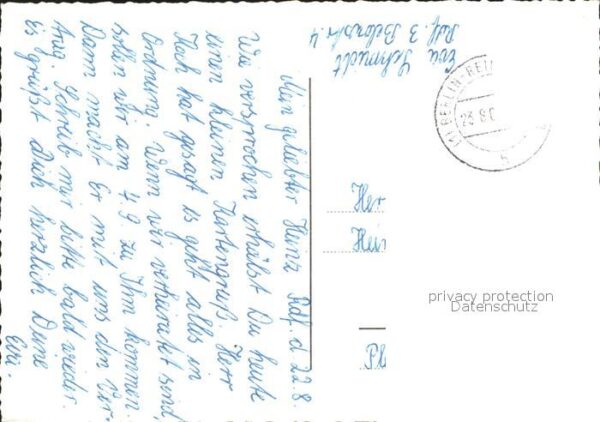 Mein geliebter Heinz Rdf. d 22.8.
Wie versprochen erhälst Du heute
einen kleinen Kartengruß. Herr
Koch hat gesagt es geht alles in
Ordnung. Wenn wir verheiratet sind,
sollen wir am 4.9. zu Ihm kommen.
Dann macht Er mit uns den Ver-
trag. Schreib mir bitte bald wieder.
Es grüßt Dich herzlich Deine
Eva.
Eva Schmidt
Rdf. 3
Her
Hein
BERLIN-REI
23.8.6
h
privacy protection
Datenschutz